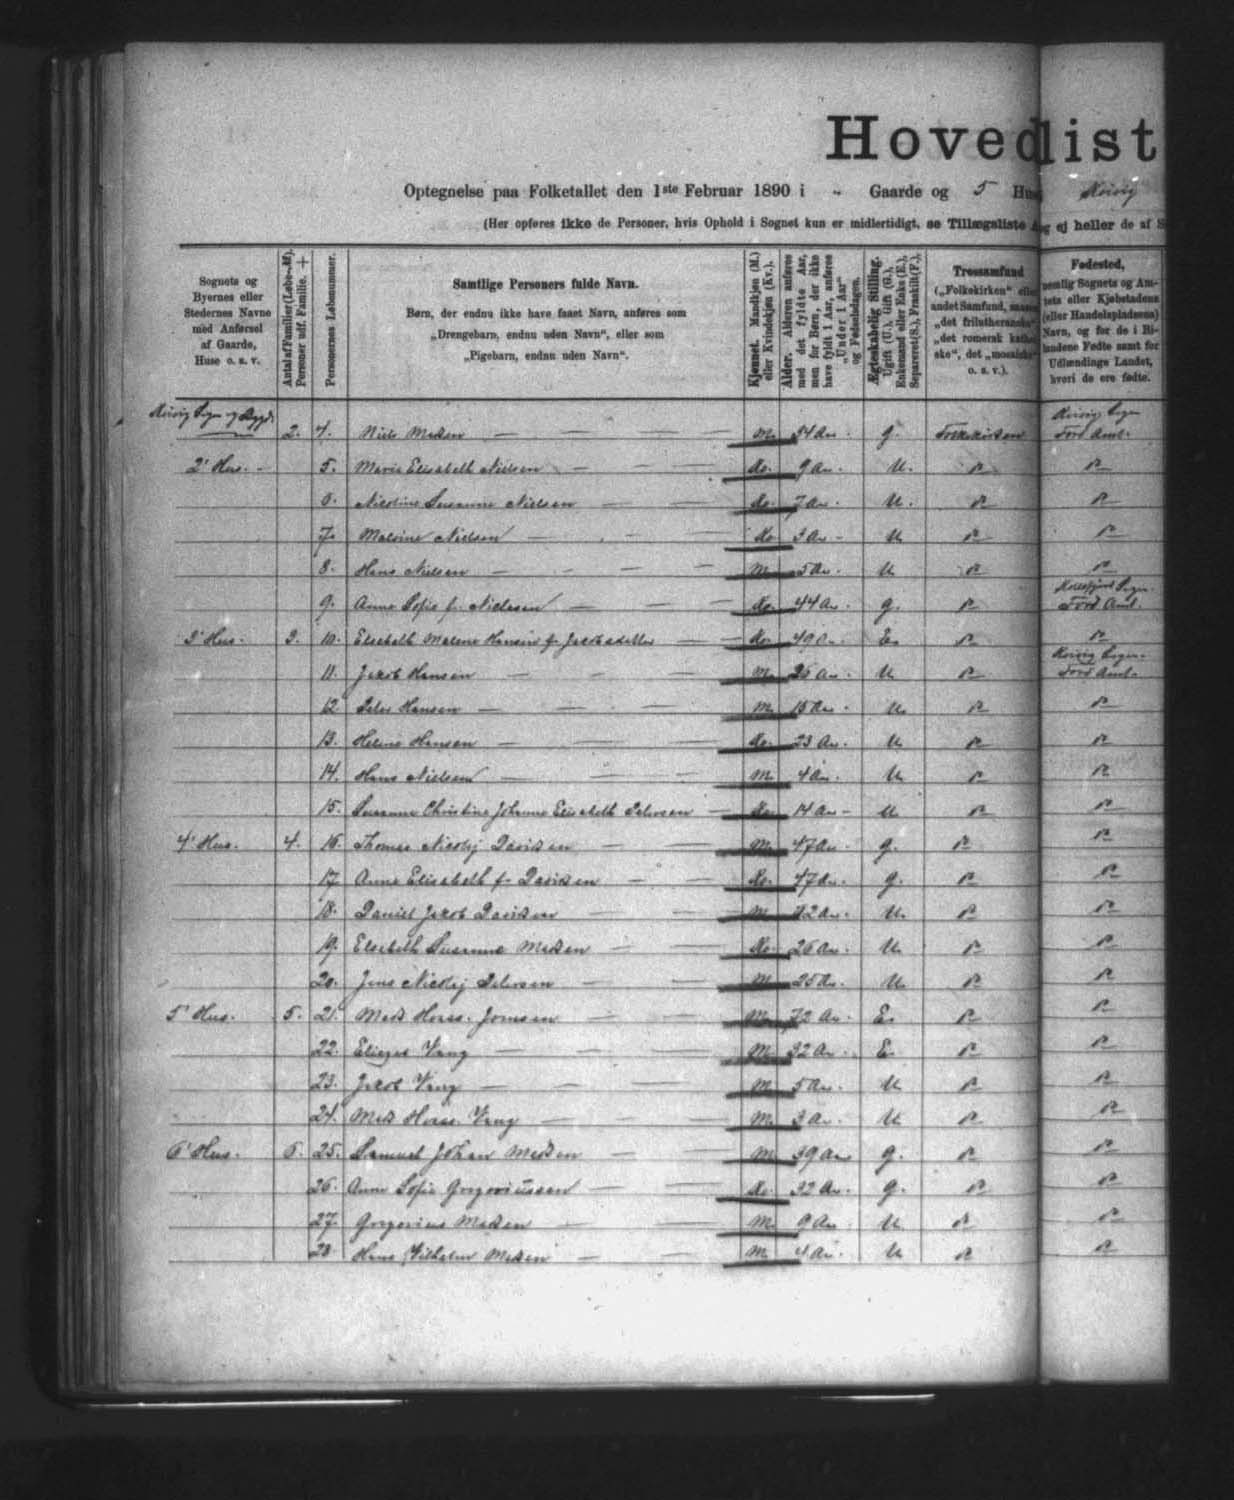 Hovedlist
Optegnelse paa Folketallet den 1ste Februar 1890 i „ Gaarde og 5 Huse Kvivig
(Her opføres ikke de Personer, hvis Ophold i Sognet kun er midlertidigt, se Tillægsliste og ej heller de af S
Sognets og Byernes eller Stedernes Navne med Anførsel af Gaarde, Huse o. s. v.
Antal af Familier (Løbe-№). Personer udf. Familie. +
Personernes Løbenummer.
Samtlige Personers fulde Navn.
Børn, der endnu ikke have faaet Navn, anføres som
„Drengebarn, endnu uden Navn“, eller som
„Pigebarn, endnu uden Navn“.
Kjønnet. Mandkjøn (M.) eller Kvindekjøn (Kv.).
Alder. Alderen anføres med det fyldte Aar, men for Børn, der ikke have fyldt 1 Aar, anføres „Under 1 Aar“ og Fødselsdagen.
Ægteskabelig Stilling. Ugift (U.), Gift (G.), Enkemand eller Enke (E.), Separeret (S.), Fraskilt (F.).
Trossamfund („Folkekirken“ eller andet Samfund, saasom „det frilutheranske“, „det romersk katholske“, det „mosaiske“ o. s. v.).
Fødested, nemlig Sognets og Amtets eller Kjøbstadens (eller Handelspladsens) Navn, og for de i Bilandene Fødte samt for Udlændinge Landet, hvori de ere fødte.
Kvivig Sogn og Bygd Kvivig Sogn
2. 4. Niels Madsen M. 54 Aar. G. Folkekirken Færø Amt.
2' Hus. 5. Marie Elisabeth Nielsen Kv. 9 Aar. U. do do
6. Nicoline Susanne Nielsen Kv. 7 Aar. U. do do
7. Malvine Nielsen Kv. 3 Aar U. do do
8. Hans Nielsen M. 5 Aar. U do do
9. Anne Sofie f. Nielsen Kv. 44 Aar. G. do Kollefjord Sogn. Færø Amt.
3' Hus. 3. 10. Elsebeth Malene Hansen f. Jacobsdatter Kv. 49 Aar. E. do do
11. Jacob Hansen M. 25 Aar. U do Kvivig Sogn. Færø Amt.
12. Peter Hansen M. 15 Aar. U. do do
13. Helene Hansen Kv. 23 Aar. U. do do
14. Hans Nielsen M. 4 Aar. U. do do
15. Susanne Christine Johanne Elisabeth Petersen Kv. 14 Aar U. do do
4' Hus. 4. 16. Thomas Nicolaj Davidsen M. 47 Aar. G. do do
17. Anne Elisabeth f. Davidsen Kv. 47 Aar. G. do do
18. Daniel Jacob Davidsen M. 12 Aar. U. do do
19. Elsebeth Susanne Madsen Kv. 26 Aar. U. do do
20. Jens Nicolaj Petersen M. 25 Aar. U. do do
5' Hus. 5. 21. Mads Horss. Joensen M. 72 Aar. E. do do
22. Eliezer Vang M. 32 Aar. E. do do
23. Jacob Vang M. 5 Aar. U do do
24. Mads Horss. Vang M. 3 Aar. U do do
6' Hus. 6. 25. Samuel Johan Madsen M. 39 Aar G. do do
26. Anne Sofie Gregoriussen Kv. 32 Aar. G. do do
27. Gregorius Madsen M. 9 Aar U. do do
28. Hans Vilhelm Madsen M. 4 Aar. U do do